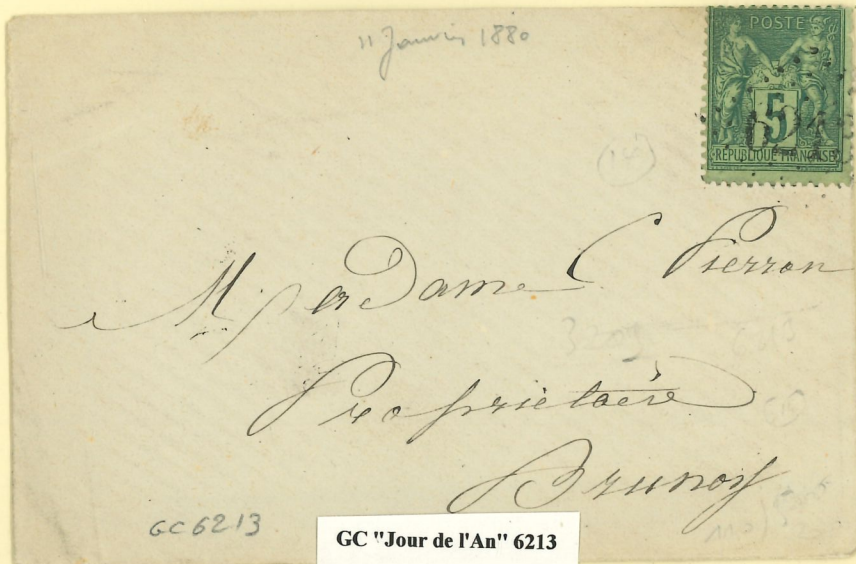 11 Janvier 1880
POSTE
5
621
REPUBLIQUE FRANÇAISE
(14)
M. er Dame C. Pierron
Propriétaire
Brunoy
GC 6213
GC "Jour de l'An" 6213